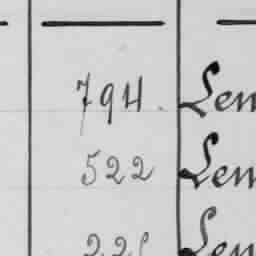 794. Lem
522 Lem
Lem